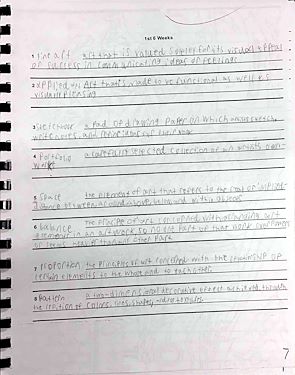 1st 6 Weeks
1 Fine art art that is valued solely for its visual appeal
or success in communicating ideas or feelings
2 applied art Art that's made to be functional as well as
visually pleasing
3 sketchbook a pad of drawing paper on which artists sketch,
write notes, and
4 Portfolio a carefully selected collection of an artists own
work
5 space the element of art that refers to the
between, around, above, below, and within objects
6 balance the principle of art concerned with
elements in an artwork so no one part of that work overpowers
or seems heavier than any other part
7 proportion the principle of art concerned with the relationship of
certain elements to the whole and to each other
8 Pattern a two-dimensional decorative effect achieved through
the repetition of colors, lines, shapes, and/or textures
7